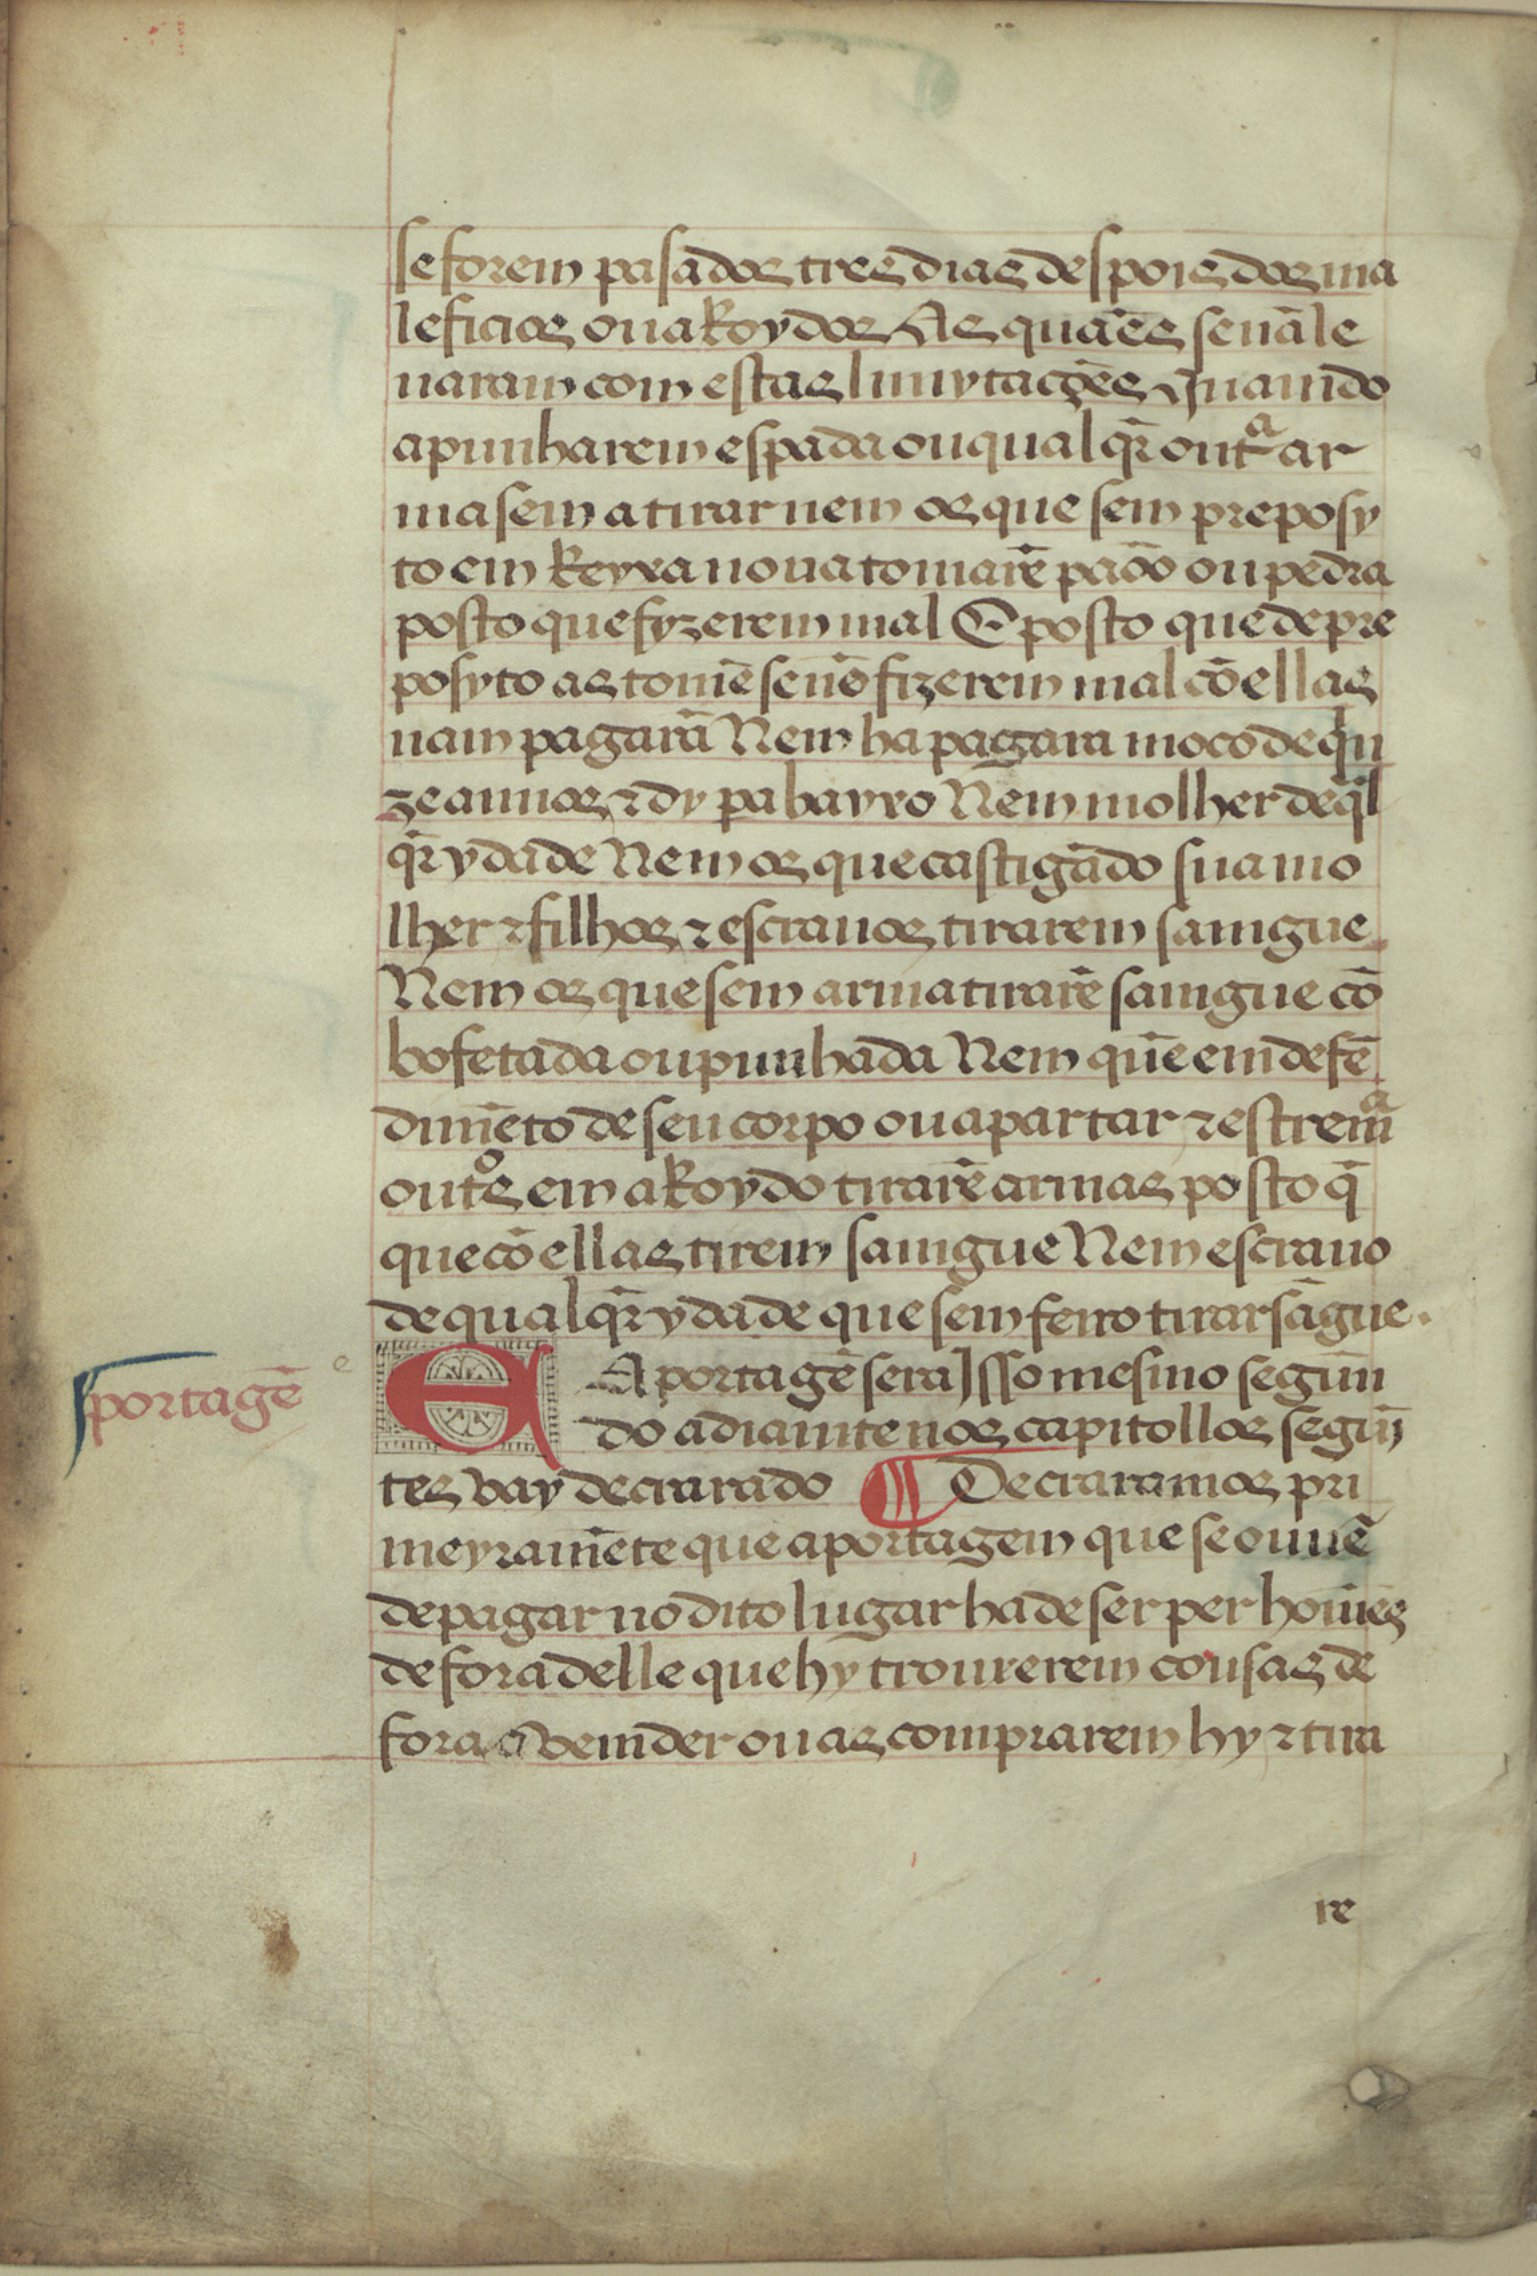 se forem pasados tres dias despois dos ma
leficios ou aRoydos As quãees se nã le
uaram com estas limytaçõees Quamdo
apunharem espada ou qual qr̃ outª ar
ma sem a tirar nem os que sem preposy
to em Reyxa noua tomarẽ paao ou pedra
posto que fyzerem mal E posto que de pre
posyto as tomẽ se nõ fizerem mal cõ ellas
nam pagarã Nem ha pagara moço de qiĩ
ze annos ⁊ dy pa bayxo Nem molher de ql̃
qr̃ ydade Nem os que castigãdo sua mo
lher ⁊ filhos ⁊ escrauos tirarem samgue
Nem os que sem arma tirarẽ samgue cõ
bofetada ou punhada Nem quẽ em defẽ
dimẽto de seu corpo ou apartar ⁊ estremª
outºs em aRoydo tirarẽ armas posto q̃
que cõ ellas tirem samgue Nem escrauo
de qual qr̃ ydade que sem ferro tirar sãgue.
portagẽ
e
E A portagẽ sera Jsso mesmo segun
do adiamte nos capitollos seguĩ
tes vay decrarado ¶ Decraramos pri
meyramẽte que a portagem que se ouuẽ
de pagar no dito lugar ha de ser per homẽes
de fora delle que hy trouxerem cousas de
fora a vemder ou as comprarem hy ⁊ tira
re